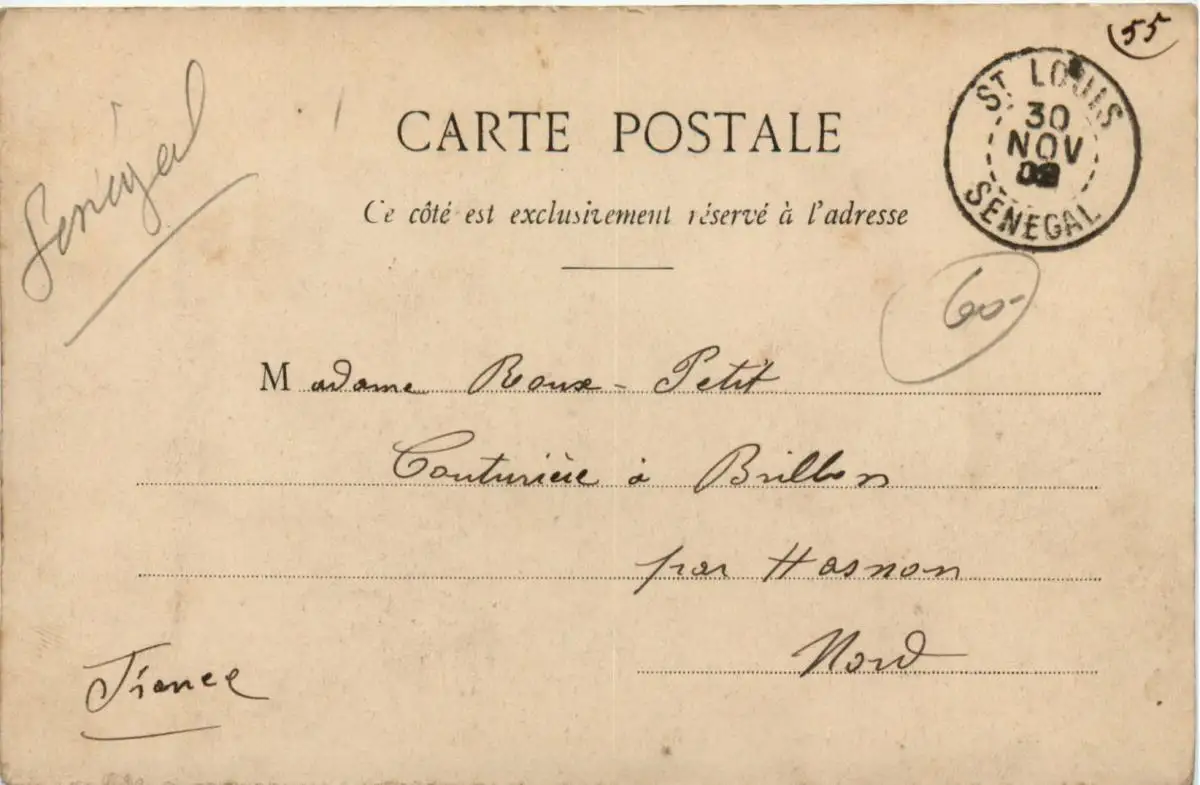 55
ST LOUIS
30
NOV
SENEGAL
Senégal
CARTE POSTALE
Ce côté est exclusivement réservé à l'adresse
60-
Madame Roux-Petit
Couturière à Brillon
par Hasnon
Nord
France